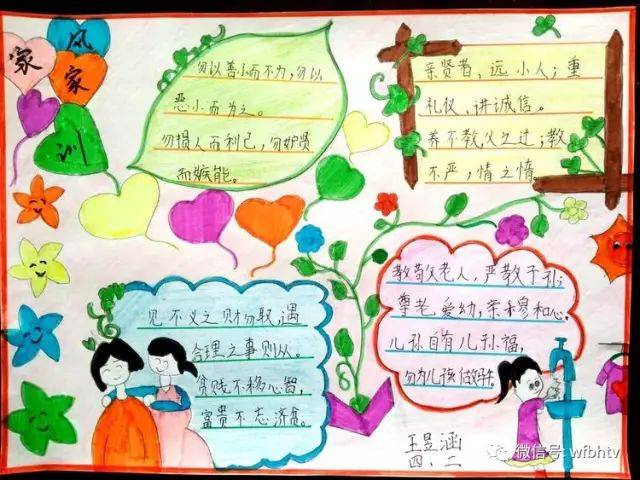 家风家训
勿以善小而不为,勿以
恶小而为之。
勿损人而利己,勿妒贤
而嫉能。
亲贤者,远小人;重
礼仪、讲诚信。
养不教,父之过;教
不严,情之惰。
教敬父老人,严教子孙;
尊老爱幼,亲穆和心。
儿孙自有儿孙福,
勿为儿孩做好牛
见不义之财勿取,遇
合理之事则从。
贫贱不移心智,
富贵不忘济贫。
王昱涵
四、二
微信号: wfbhtv